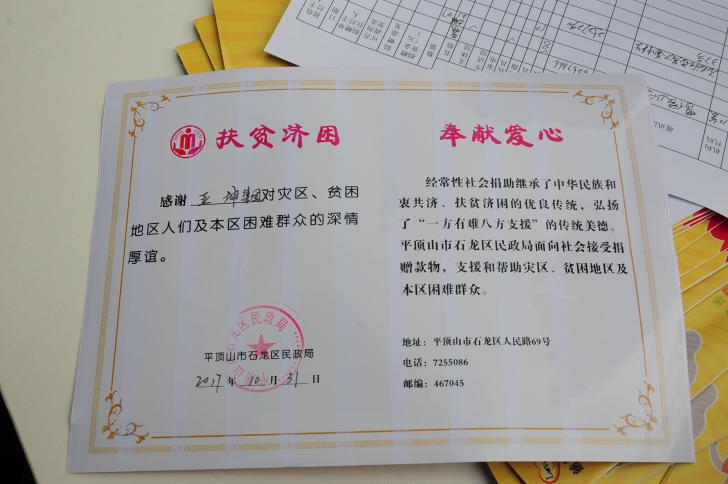 扶贫济困
感谢 亚坤集团对灾区、贫困
地区人们及本区困难群众的深情
厚谊。
平顶山市石龙区民政局
2017年10月31日
奉献爱心
经常性社会捐助继承了中华民族和
衷共济、扶贫济困的优良传统，弘扬
了“一方有难八方支援”的传统美德。
平顶山市石龙区民政局面向社会接受捐
赠款物，支援和帮助灾区、贫困地区及
本区困难群众。
地址：平顶山市石龙区人民路69号
电话：7255086
邮编：467045